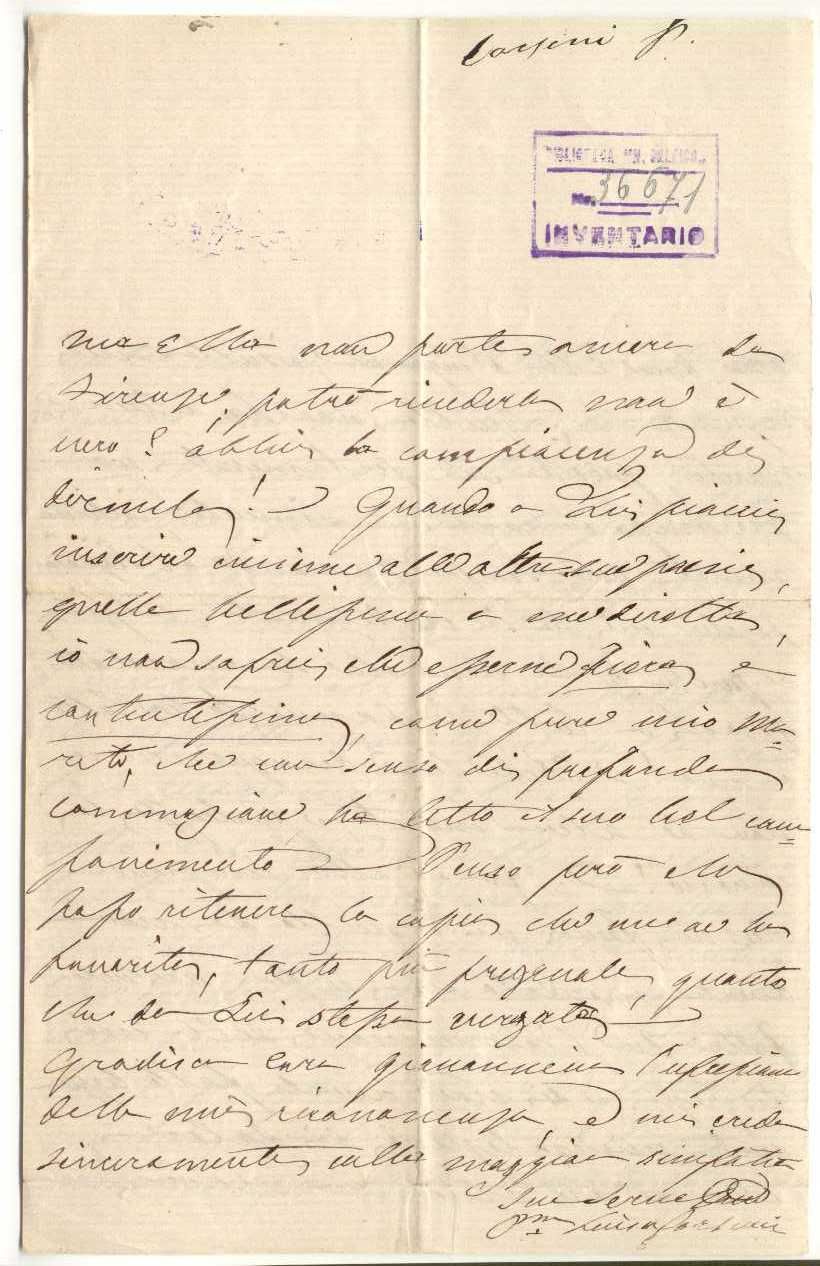 Corsini P.
BIBLIOTECA
No. 36671
INVENTARIO
ma Ella non parte ancora da
Firenze, potrò rivederla non è
vero? abbia la compiacenza di
dirmelo! – Quando a Lei piaccia
inserire insieme alle altre sue poesie,
quella bellissima a me diretta,
io non saprei che esserne fiera, e
contentissima, come pure mio ma=
rito, che con senso di profonda
commozione ha letto il suo bel com=
ponimento – Penso però che
posso ritenere la copia che me ne ha
favorita, tanto più pregevole, quanto
che da Lei stessa vergata –
Gradisca cara Giannina l'espressione
della mia riconoscenza, e mi creda
sinceramente colla maggior simpatia
Sua
Luisa Corsini